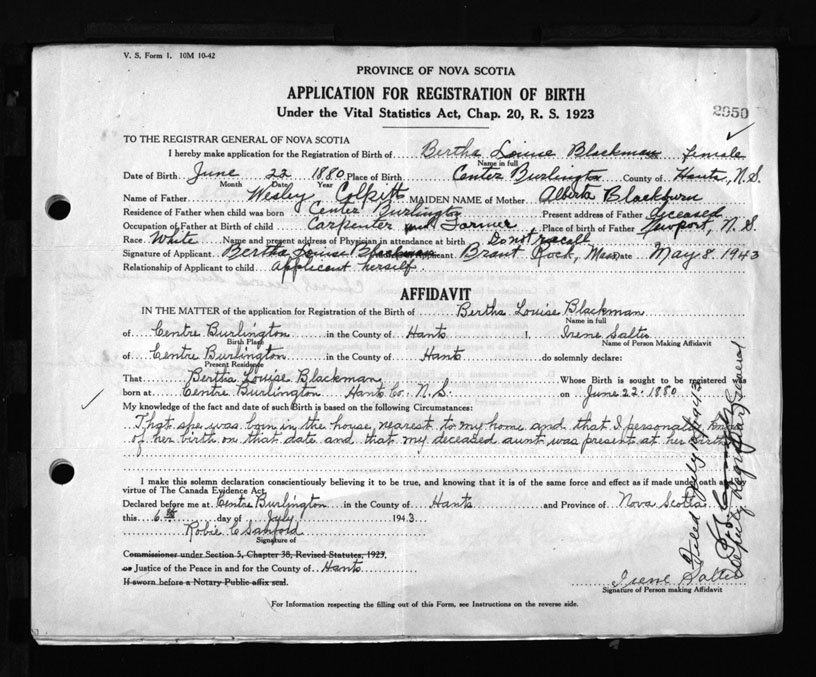 V. S. Form 1. 10M 10-42
PROVINCE OF NOVA SCOTIA
APPLICATION FOR REGISTRATION OF BIRTH
Under the Vital Statistics Act, Chap. 20, R. S. 1923
2950
TO THE REGISTRAR GENERAL OF NOVA SCOTIA
I hereby make application for the Registration of Birth of Bertha Louise Blackman female
Name in full
Date of Birth June 22 1880 Place of Birth Center Burlington County of Hants, N.S.
Month Date Year
Name of Father Wesley Colpitt MAIDEN NAME of Mother Alberta Blackburn
Residence of Father when child was born Center Burlington Present address of Father deceased
Occupation of Father at Birth of child Carpenter and Farmer Place of Birth of Father Newport, N.S.
Race White Name and present address of Physician in attendance at birth Do not recall
Signature of Applicant Bertha Louise Blackman Brant Rock, Mass Date May 8. 1943
Relationship of Applicant to child applicant herself
AFFIDAVIT
IN THE MATTER of the application for Registration of the Birth of Bertha Louise Blackman
Name in full
of Centre Burlington in the County of Hants I, Irene Salter
Birth Place Name of Person Making Affidavit
of Centre Burlington in the County of Hants do solemnly declare:
Present Residence
That Bertha Louise Blackman Whose Birth is sought to be registered was
born at Centre Burlington Hants Co. N.S. on June 22. 1880
My knowledge of the fact and date of such Birth is based on the following Circumstances:
That she was born in the house nearest to my home and that I personally know
of her birth on that date and that my deceased aunt was present at her birth
I make this solemn declaration conscientiously believing it to be true, and knowing that it is of the same force and effect as if made under oath
virtue of The Canada Evidence Act,
Declared before me at Centre Burlington in the County of Hants and Province of Nova Scotia
this 6th day of July 1943.
Robie C Sanford
Signature of
Commissioner under Section 5, Chapter 38, Revised Statutes, 1923,
or Justice of the Peace in and for the County of Hants
If sworn before a Notary Public affix seal.
Irene Salter
Signature of Person making Affidavit
For Information respecting the filling out of this Form, see Instructions on the reverse side.
Filed July
Deputy Registrar General